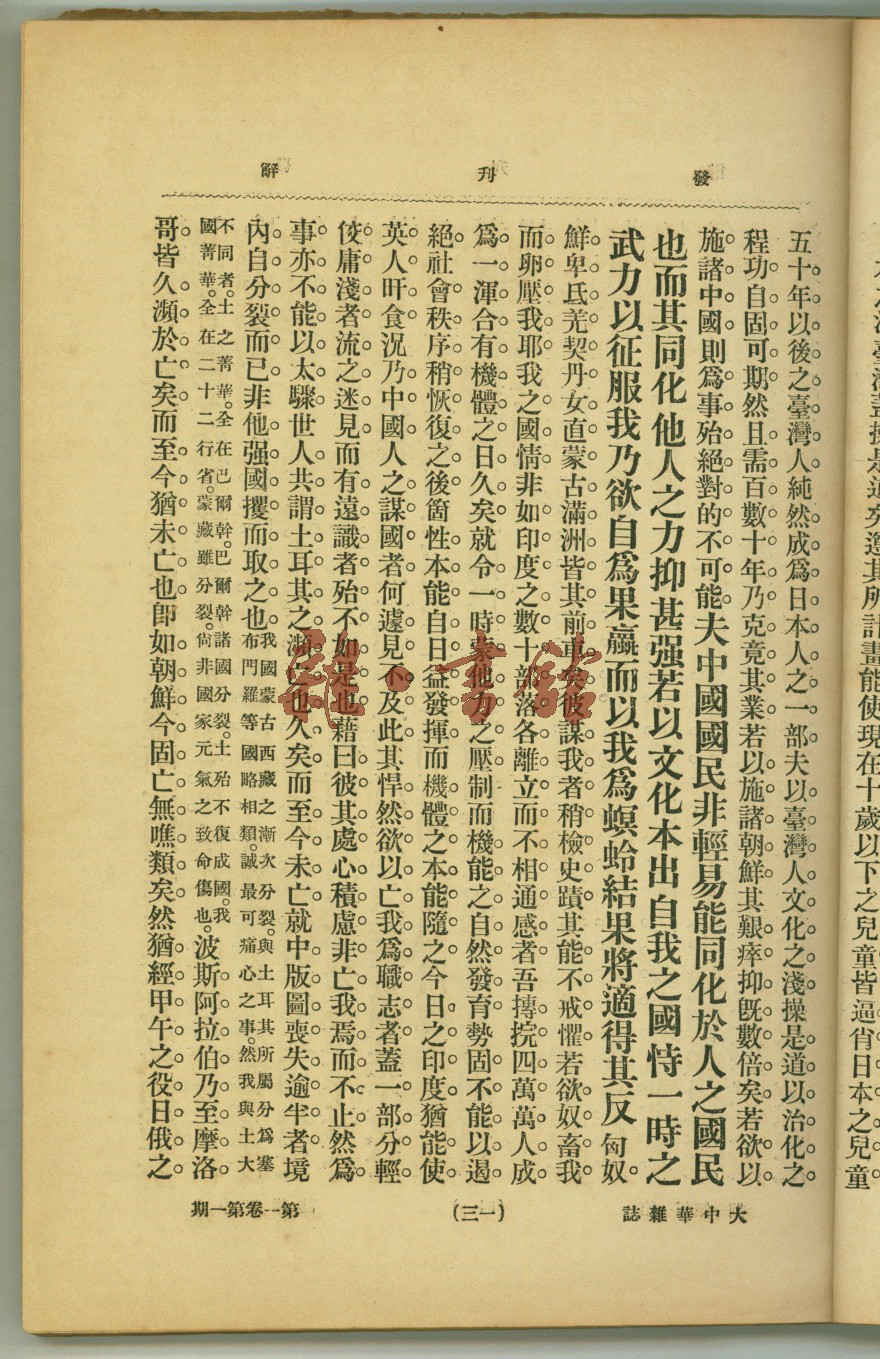 發刊辭
五十年以後之臺灣人純然成爲日本人之一部夫以臺灣人文化之淺操是道以治化之
程功自固可期然且需百數十年乃克竟其業若以施諸朝鮮其艱瘁抑既數倍矣若欲以
施諸中國則爲事殆絕對的不可能夫中國國民非輕易能同化於人之國民
也而其同化他人之力抑甚强若以文化本出自我之國恃一時之
武力以征服我乃欲自爲果蠃而以我爲螟蛉結果將適得其反匈奴
鮮卑氐羌契丹女直蒙古滿洲皆其前車矣彼謀我者稍檢史蹟其能不戒懼若欲奴畜我
而卵壓我耶我之國情非如印度之數十部落各離立而不相通感者吾摶捖四萬萬人成
爲一渾合有機體之日久矣就令一時蒙他力之壓制而機能之自然發育勢固不能以遏
絕社會秩序稍恢復之後箇性本能自日益發揮而機體之本能隨之今日之印度猶能使
英人旰食況乃中國人之謀國者何遽見不及此其悍然欲以亡我爲職志者蓋一部分輕
佼庸淺者流之迷見而有遠識者殆不如是也藉曰彼其處心積慮非亡我焉而不止然爲
事亦不能以太驟世人共謂土耳其之瀕亡也久矣而至今未亡就中版圖喪失逾半者境
內自分裂而已非他强國攫而取之也我國蒙古西藏之漸次分裂。與土耳其所屬分爲塞
布門羅等國略相類。誠最可痛心之事。然我與土大
不同者。土之菁華。全在巴爾幹。巴爾幹諸國分裂。土殆不復成國。我
國菁華。全在二十二行省。蒙藏雖分裂。尙非國家元氣之致命傷也。波斯阿拉伯乃至摩洛
哥皆久瀕於亡矣而至今猶未亡也卽如朝鮮今固亡無噍類矣然猶經甲午之役日俄之
大中華雜誌
(一三)
第一卷第一期
龍・書館
五歲以下之兒童皆逼肖日本之兒童